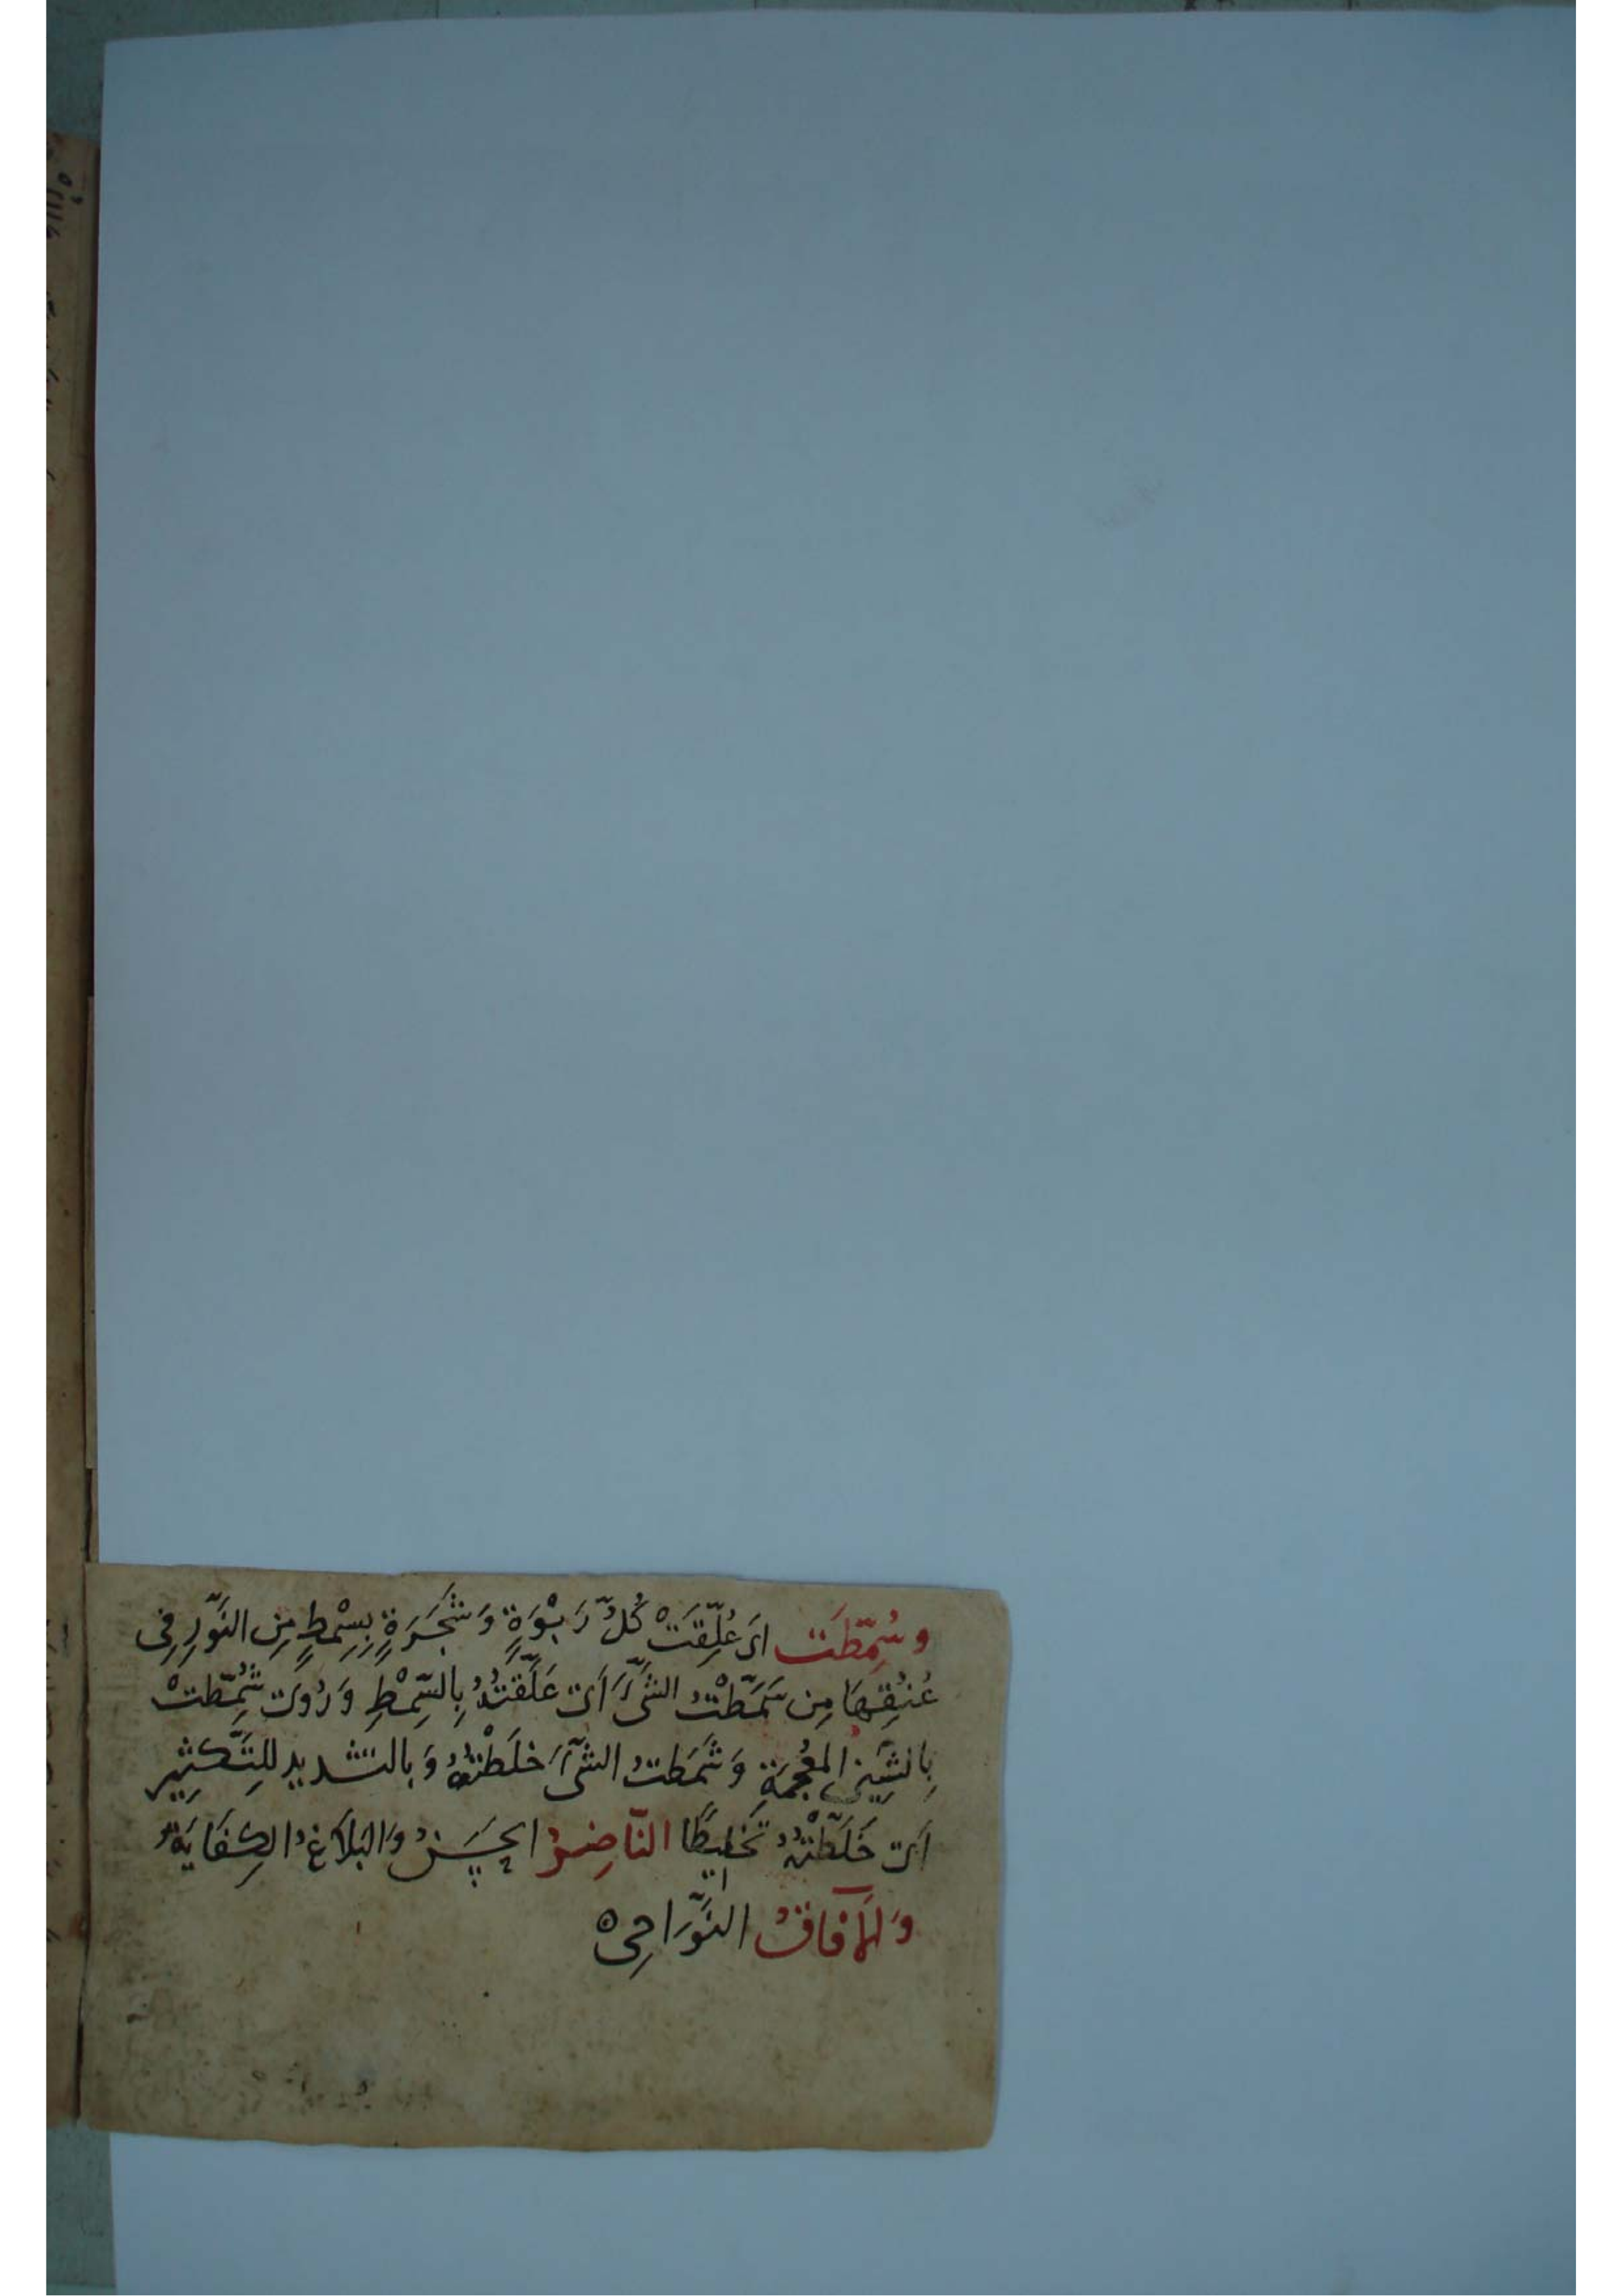 وَسُمِّطَت اَى عُلِّقَتْ كُلُّ رَبْوَةٍ وَشَجَرَةٍ بِسِمْطٍ مِنَ النَّوْرِ فِى
عُنُقِهَا مِن سَمَّطْتُ الشَّىْءَ اَىْ عَلَّقْتُهُ بِالسِّمْطِ وَرُوِىَ شُمِّطَتْ
بِالشِّينِ المُعْجَمَةِ وَشَمَطتُ الشَّىْءَ خَلَطْتُهُ وَبِالتشديدِ لِلتَّكثِيرِ
اَىْ خَلَّطْتُهُ تَخلِيطًا النَّاضِرُ الحَسَنُ وَالبَلَاغُ الكِفَايَةُ
وَالآفَاقُ النَّوَاحِى